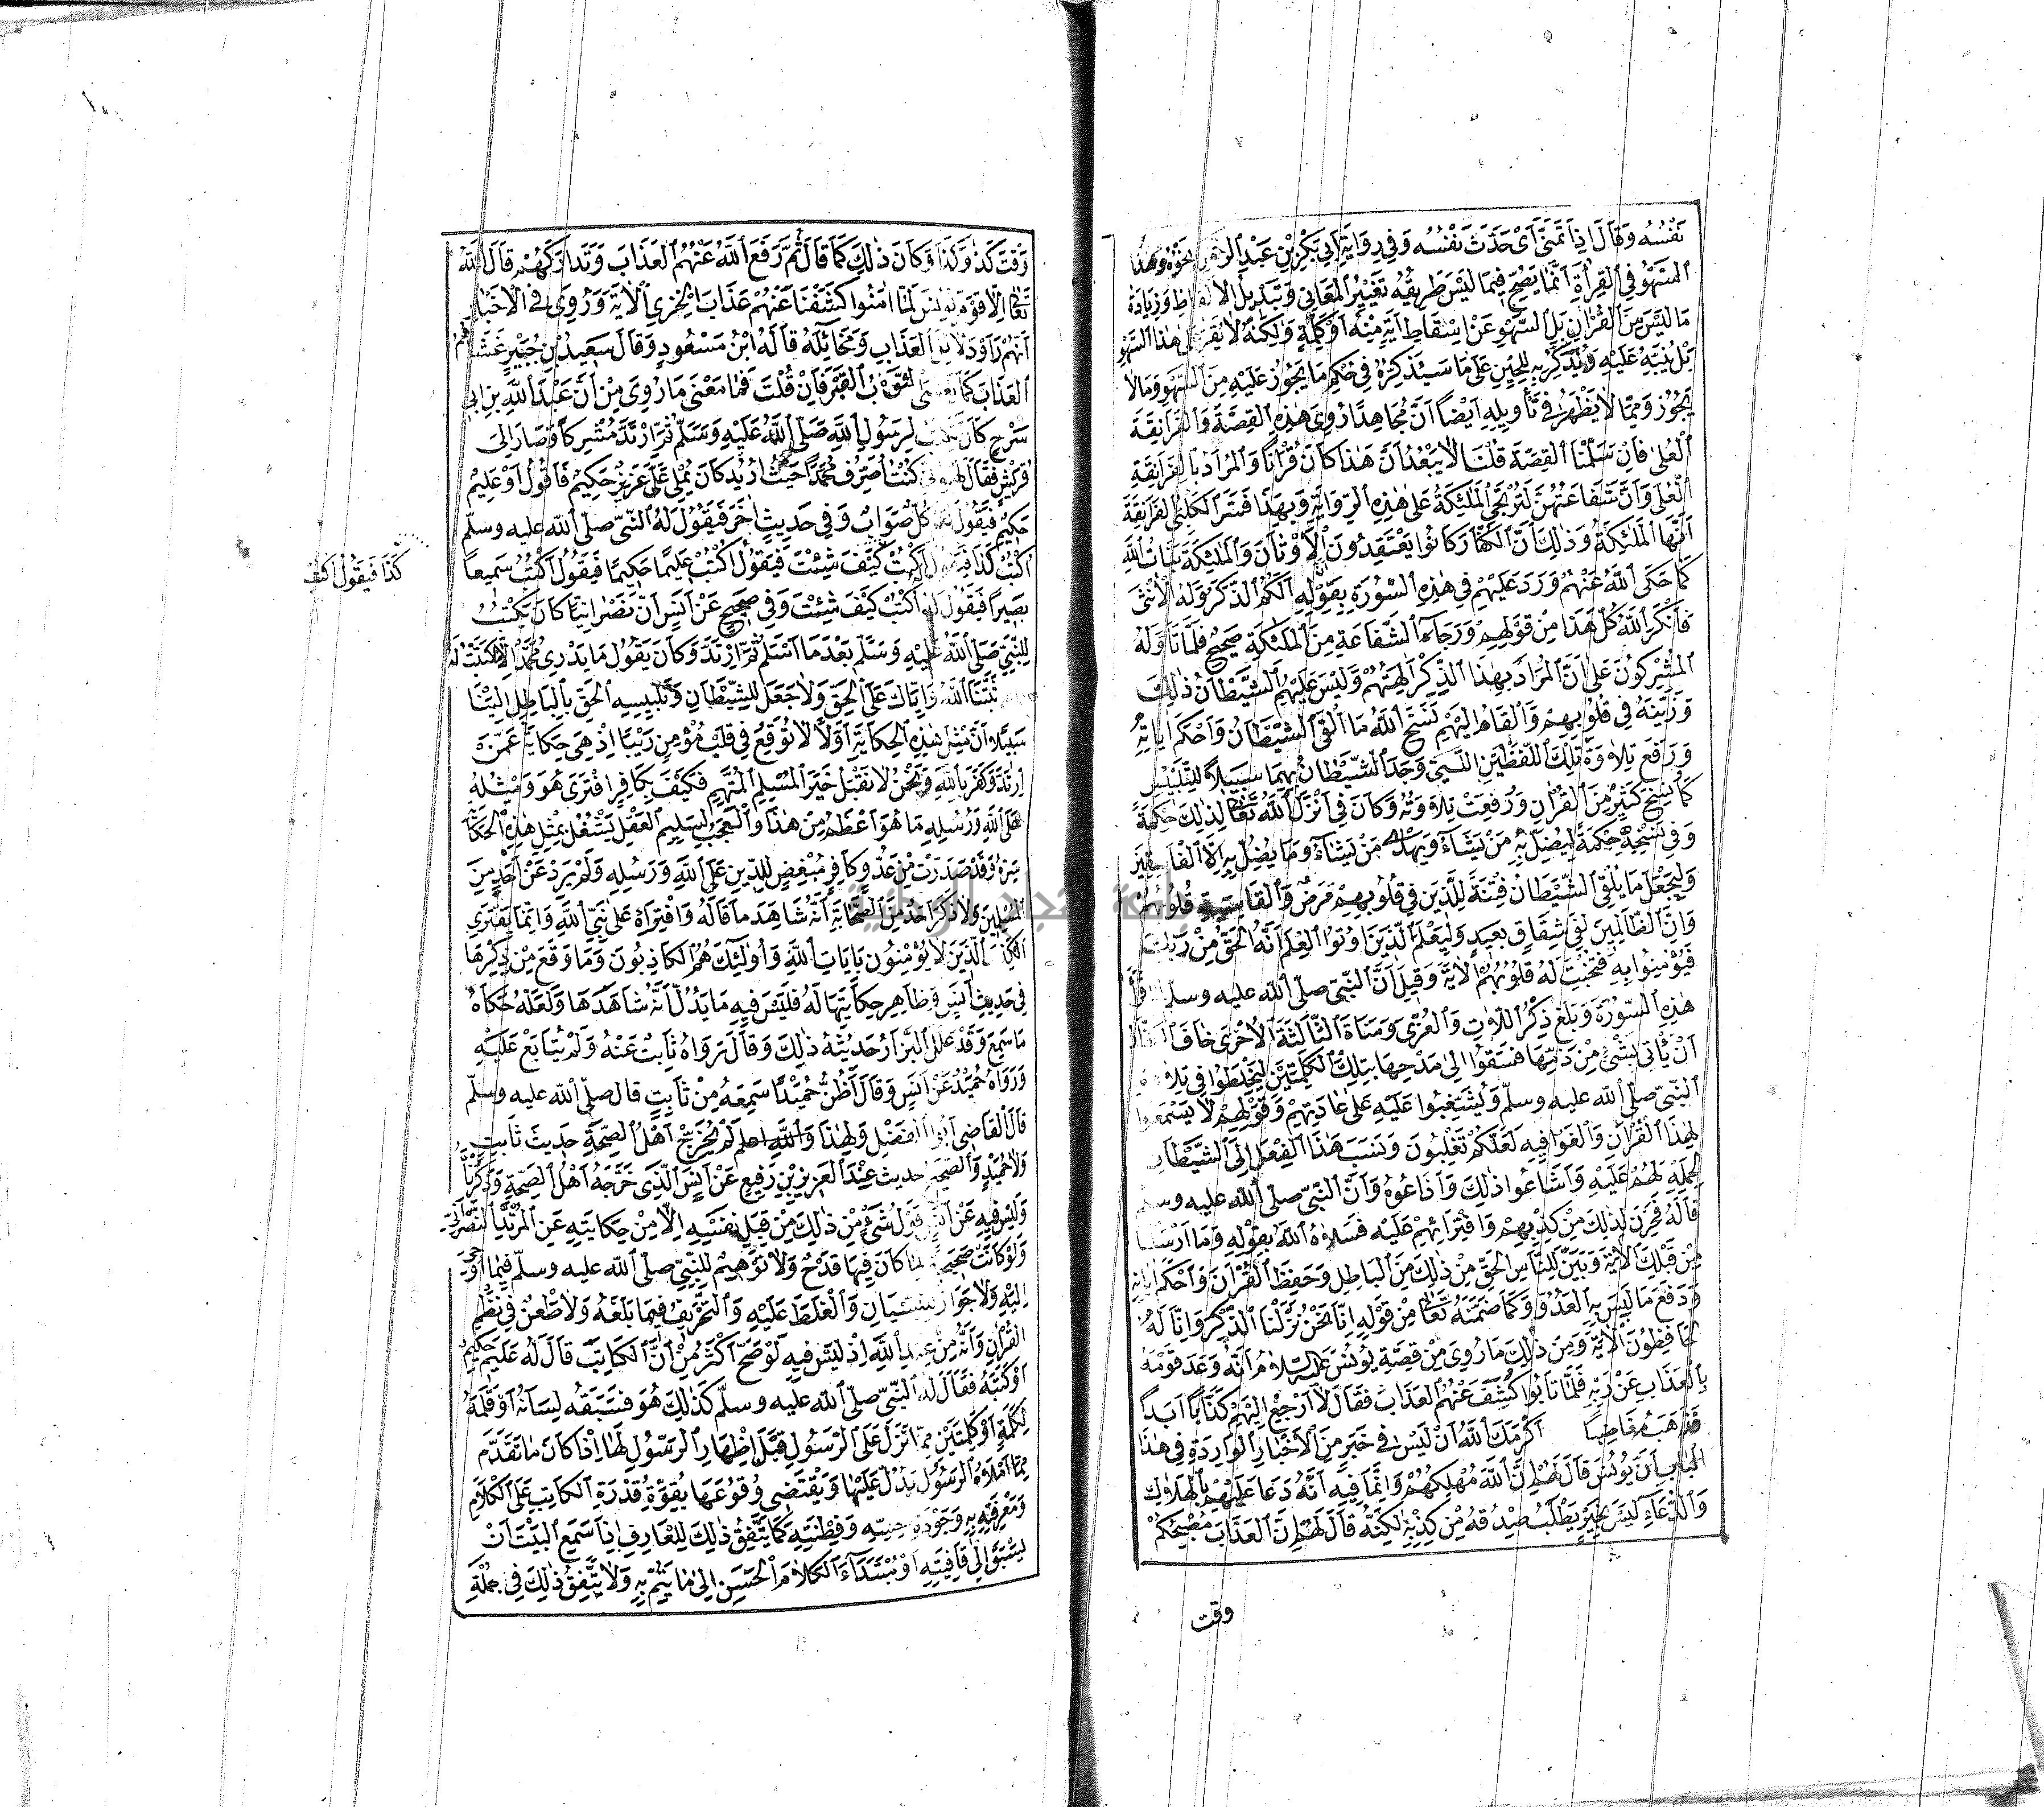 نَفْسُهُ وَقَالَ إِذَا تَمَنَّى أَىْ حَدَّثَ نَفْسَهُ وَفِى رِوَايَةِ أَبِى بَكْرِ بْنِ عَبْدِ الرحمن نَحْوُهُ وَهٰذَا
السَّهْوُ فِى الْقِرَاءَةِ إِنَّمَا يَصِحُّ فِيمَا لَيْسَ طَرِيقُهُ تَغْيِيرَ الْمَعَانِى وَتَبْدِيلَ الْأَلْفَاظِ وَزِيَادَةَ
مَا لَيْسَ مِنَ الْقُرْآنِ بَلِ السَّهْوُ عَنْ إِسْقَاطِ آيَةٍ مِنْهُ أَوْ كَلِمَةٍ وَلٰكِنَّهُ لَا يُقَرُّ عَلَى هٰذَا السَّهْوِ
بَلْ يُنَبَّهُ عَلَيْهِ وَيُذَكَّرُ بِهِ لِلْحِينِ عَلَى مَا سَيَذْكُرُهُ فِى حُكْمِ مَا يَجُوزُ عَلَيْهِ مِنَ السَّهْوِ وَمَا لَا
يَجُوزُ وَمِمَّا لَا يَظْهَرُ فِى تَأْوِيلِهِ أَيْضًا أَنَّ مُجَاهِدًا رُوِىَ هٰذِهِ الْقِصَّةَ وَالْغَرَانِقَةَ
الْعُلَى فَإِنْ سَلَّمْنَا الْقِصَّةَ قُلْنَا لَا يَبْعُدُ أَنَّ هٰذَا كَانَ قُرْآنًا وَالْمُرَادُ بِالْغَرَانِقَةِ
الْعُلَى وَأَنَّ شَفَاعَتَهُنَّ لَتُرْتَجَى الْمَلٰئِكَةُ عَلَى هٰذِهِ الرِّوَايَةِ وَبِهٰذَا فَسَّرَ الْكَلْبِىُّ الْغَرَانِقَةَ
أَنَّهَا الْمَلٰئِكَةُ وَذٰلِكَ أَنَّ الْكُفَّارَ كَانُوا يَعْتَقِدُونَ الْأَوْثَانَ وَالْمَلٰئِكَةَ بَنَاتُ اللّٰهِ
كَمَا حَكَى اللّٰهُ عَنْهُمْ وَرَدَّ عَلَيْهِمْ فِى هٰذِهِ السُّورَةِ بِقَوْلِهِ أَلَكُمُ الذَّكَرُ وَلَهُ الْأُنْثَى
فَأَنْكَرَ اللّٰهُ كُلَّ هٰذَا مِنْ قَوْلِهِمْ وَرَجَاءُ الشَّفَاعَةِ مِنَ الْمَلٰئِكَةِ صَحِيحٌ فَلَمَّا تَأَوَّلَهُ
الْمُشْرِكُونَ عَلَى أَنَّ الْمُرَادَ بِهٰذَا الذِّكْرِ آلِهَتُهُمْ وَلَبَّسَ عَلَيْهِمُ الشَّيْطَانُ ذٰلِكَ
وَزَيَّنَهُ فِى قُلُوبِهِمْ وَأَلْقَاهُ إِلَيْهِمْ نَسَخَ اللّٰهُ مَا أَلْقَى الشَّيْطَانُ وَأَحْكَمَ آيَاتِهِ
وَرَفَعَ تِلَاوَةَ تِلْكَ اللَّفْظَتَيْنِ الَّتِى وَجَدَ الشَّيْطَانُ بِهِمَا سَبِيلًا لِلتَّلْبِيسِ
كَمَا نُسِخَ كَثِيرٌ مِنَ الْقُرْآنِ وَرُفِعَتْ تِلَاوَتُهُ وَكَانَ فِى أَنْزَلَ اللّٰهُ تَعَالَى لِذٰلِكَ حِكْمَةٌ
وَفِى نَسْخِهِ حِكْمَةٌ لِيُضِلَّ بِهِ مَنْ يَشَاءُ وَيَهْدِى مَنْ يَشَاءُ وَمَا يُضِلُّ بِهِ إِلَّا الْفَاسِقِينَ
وَلِيَجْعَلَ مَا يُلْقِى الشَّيْطَانُ فِتْنَةً لِلَّذِينَ فِى قُلُوبِهِمْ مَرَضٌ وَالْقَاسِيَةِ قُلُوبُهُمْ
وَإِنَّ الظَّالِمِينَ لَفِى شِقَاقٍ بَعِيدٍ وَلِيَعْلَمَ الَّذِينَ أُوتُوا الْعِلْمَ أَنَّهُ الْحَقُّ مِنْ رَبِّكَ
فَيُؤْمِنُوا بِهِ فَتُخْبِتَ لَهُ قُلُوبُهُمْ الْآيَةَ وَقِيلَ أَنَّ النَّبِىَّ صلّى اللّٰه عليه وسلم
هٰذِهِ السُّورَةَ وَبَلَغَ ذِكْرَ اللَّاتِ وَالْعُزَّى وَمَنَاةَ الثَّالِثَةَ الْأُخْرَى خَافَ
أَنْ يَأْتِىَ بِشَىْءٍ مِنْ ذَمِّهَا فَسَبَقُوا إِلَى مَدْحِهَا بِتِلْكَ الْكَلِمَتَيْنِ لِيَخْلِطُوا فِى تِلَاوَةِ
النَّبِىِّ صلّى اللّٰه عليه وسلّم وَيُشَنِّعُوا عَلَيْهِ عَلَى عَادَتِهِمْ وَقَوْلِهِمْ لَا تَسْمَعُوا
لِهٰذَا الْقُرْآنِ وَالْغَوْا فِيهِ لَعَلَّكُمْ تَغْلِبُونَ وَنُسِبَ هٰذَا الْفِعْلُ إِلَى الشَّيْطَانِ
لِحَمْلِهِ لَهُمْ عَلَيْهِ وَأَشَاعُوا ذٰلِكَ وَأَذَاعُوهُ وَأَنَّ النَّبِىَّ صلّى اللّٰه عليه وسلم
قَالَهُ فَحَزِنَ لِذٰلِكَ مِنْ كَذِبِهِمْ وَافْتِرَائِهِمْ عَلَيْهِ فَسَلَّاهُ اللّٰهُ بِقَوْلِهِ وَمَا أَرْسَلْنَا
مِنْ قَبْلِكَ الْآيَةَ وَبَيَّنَ لِلنَّاسِ الْحَقَّ مِنْ ذٰلِكَ مِنَ الْبَاطِلِ وَحَفِظَ الْقُرْآنَ وَأَحْكَمَ آيَاتِهِ
وَدَفَعَ مَا لَبَّسَ بِهِ الْعَدُوُّ وَكَمَا ضَمِنَهُ تَعَالَى مِنْ قَوْلِهِ إِنَّا نَحْنُ نَزَّلْنَا الذِّكْرَ وَإِنَّا لَهُ
لَحَافِظُونَ الْآيَةَ وَمِنْ ذٰلِكَ مَا رُوِىَ مِنْ قِصَّةِ يُونُسَ عَلَيْهِ السَّلَامُ أَنَّهُ وَعَدَ قَوْمَهُ
بِالْعَذَابِ عَنْ رَبِّهِ فَلَمَّا تَابُوا كُشِفَ عَنْهُمُ الْعَذَابُ فَقَالَ لَا أَرْجِعُ إِلَيْهِمْ كَذَّابًا أَبَدًا
فَذَهَبَ مُغَاضِبًا أَكْرَمَكَ اللّٰهُ أَنْ لَيْسَ فِى خَبَرٍ مِنَ الْأَخْبَارِ الْوَارِدَةِ فِى هٰذَا
الْبَابِ أَنَّ يُونُسَ قَالَ لَهُمْ إِنَّ اللّٰهَ مُهْلِكُهُمْ وَإِنَّمَا فِيهِ أَنَّهُ دَعَا عَلَيْهِمْ بِالْهَلَاكِ
وَالدُّعَاءِ لَيْسَ بِخَبَرٍ يُطْلَبُ صِدْقُهُ مِنْ كَذِبِهِ لٰكِنَّهُ قَالَ لَهُمْ إِنَّ الْعَذَابَ مُصَبِّحُكُمْ
وقت
وَقْتَ كَذَا وَكَذَا وَكَانَ ذٰلِكَ كَمَا قَالَ ثُمَّ رَفَعَ اللّٰهُ عَنْهُمُ الْعَذَابَ وَتَدَارَكَهُمْ قَالَ اللّٰهُ
تَعَالَى إِلَّا قَوْمَ يُونُسَ لَمَّا آمَنُوا كَشَفْنَا عَنْهُمْ عَذَابَ الْخِزْىِ الْآيَةَ وَرُوِىَ فِى الْأَخْبَارِ
أَنَّهُمْ رَأَوْا دَلَائِلَ الْعَذَابِ وَمَخَائِلَهُ قَالَهُ ابْنُ مَسْعُودٍ وَقَالَ سَعِيدُ بْنُ جُبَيْرٍ غَشَّاهُمُ
الْعَذَابُ كَمَا يُغَشَّى الثَّوْبُ الْقَبْرَ فَإِنْ قُلْتَ فَمَا مَعْنَى مَا رُوِىَ مِنْ أَنَّ عَبْدَ اللّٰهِ بْنَ أَبِى
سَرْحٍ كَانَ يَكْتُبُ لِرَسُولِ اللّٰهِ صَلَّى اللّٰهُ عَلَيْهِ وَسَلَّمَ ثُمَّ ارْتَدَّ مُشْرِكًا وَصَارَ إِلَى
قُرَيْشٍ فَقَالَ لَهُمْ إِنِّى كُنْتُ أُصَرِّفُ مُحَمَّدًا حَيْثُ أُرِيدُ كَانَ يُمْلِى عَلَىَّ عَزِيزٌ حَكِيمٌ فَأَقُولُ أَوْ عَلِيمٌ
حَكِيمٌ فَيَقُولُ نَعَمْ كُلٌّ صَوَابٌ وَفِى حَدِيثٍ آخَرَ فَيَقُولُ لَهُ النَّبِىُّ صلّى اللّٰه عليه وسلّم
اكْتُبْ كَذَا فَيَقُولُ اكْتُبْ كَيْفَ شِئْتَ فَيَقُولُ اكْتُبْ عَلِيمًا حَكِيمًا فَيَقُولُ أَكْتُبُ سَمِيعًا
كَذَا فَيَقُولُ أَكْتُبُ
بَصِيرًا فَيَقُولُ لَهُ اكْتُبْ كَيْفَ شِئْتَ وَفِى صَحِيحٍ عَنْ أَنَسٍ أَنَّ نَصْرَانِيًّا كَانَ يَكْتُبُ
لِلنَّبِىِّ صَلَّى اللّٰهُ عَلَيْهِ وَسَلَّمَ بَعْدَ مَا أَسْلَمَ ثُمَّ ارْتَدَّ وَكَانَ يَقُولُ مَا يَدْرِى مُحَمَّدٌ إِلَّا مَا كَتَبْتُ لَهُ
ثَبَّتَنَا اللّٰهُ وَإِيَّاكَ عَلَى الْحَقِّ وَلَا جَعَلَ لِلشَّيْطَانِ وَتَلْبِيسِهِ الْحَقَّ بِالْبَاطِلِ إِلَيْنَا
سَبِيلًا أَنَّ مِثْلَ هٰذِهِ الْحِكَايَةِ أَوَّلًا لَا تُوقِعُ فِى قَلْبِ مُؤْمِنٍ رَيْبًا إِذْ هِىَ حِكَايَةٌ عَمَّنِ
ارْتَدَّ وَكَفَرَ بِاللّٰهِ وَنَحْنُ لَا نَقْبَلُ خَبَرَ الْمُسْلِمِ الْمُتَّهَمِ فَكَيْفَ بِكَافِرٍ افْتَرَى هُوَ وَمِثْلُهُ
عَلَى اللّٰهِ وَرُسُلِهِ مَا هُوَ أَعْظَمُ مِنْ هٰذَا وَالْعَجَبُ لِسَلِيمِ الْعَقْلِ يَشْغَلُ بِمِثْلِ هٰذِهِ الْحِكَايَةِ
سِرَّهُ وَقَدْ صَدَرَتْ مِنْ عَدُوٍّ كَافِرٍ مُبْغِضٍ لِلدِّينِ عَلَى اللّٰهِ وَرَسُلِهِ وَلَمْ يَرِدْ عَنْ أَحَدٍ مِنَ
الْمُسْلِمِينَ وَلَا ذَكَرَ أَحَدٌ مِنَ الصَّحَابَةِ أَنَّهُ شَاهَدَ مَا قَالَهُ وَافْتَرَاهُ عَلَى نَبِىِّ اللّٰهِ وَإِنَّمَا يَفْتَرِى
الْكَذِبَ الَّذِينَ لَا يُؤْمِنُونَ بِآيَاتِ اللّٰهِ وَأُولٰئِكَ هُمُ الْكَاذِبُونَ وَمَا وَقَعَ مِنْ ذِكْرِهَا
فِى حَدِيثِ أَنَسٍ وَظَاهِرِ حِكَايَتِهَا لَهُ فَلَيْسَ فِيهِ مَا يَدُلُّ أَنَّهُ شَاهَدَهَا وَلَعَلَّهُ حَكَاهُ
مَا سَمِعَ وَقَدْ عَلَّلَ الْبَزَّارُ حَدِيثَهُ ذٰلِكَ وَقَالَ رَوَاهُ ثَابِتٌ عَنْهُ وَلَمْ يُتَابَعْ عَلَيْهِ
وَرَوَاهُ حُمَيْدٌ عَنْ أَنَسٍ وَقَالَ أَظُنُّ حُمَيْدًا سَمِعَهُ مِنْ ثَابِتٍ قال صلّى اللّٰه عليه وسلّم
قَالَ الْقَاضِى أَبُو الْفَضْلِ وَلِهٰذَا وَاللّٰهُ اعلم لَمْ يُخَرِّجْ أَهْلُ الصِّحَّةِ حَدِيثَ ثَابِتٍ
وَلَا حُمَيْدٍ وَالصَّحِيحُ حديث عَبْدِ الْعَزِيزِ بْنِ رَفِيعٍ عَنْ أَنَسٍ الَّذِى خَرَّجَهُ أَهْلُ الصِّحَّةِ وَذَكَرْنَاهُ
وَلَيْسَ فِيهِ عَنْ أَنَسٍ قَوْلُ شَىْءٍ مِنْ ذٰلِكَ مِنْ قِبَلِ نَفْسِهِ إِلَّا مِنْ حِكَايَتِهِ عَنِ الْمُرْتَدِّ النَّصْرَانِىِّ
وَلَوْ كَانَتْ صَحِيحَةً لَمَا كَانَ فِيهَا قَدْحٌ وَلَا تَوْهِيمٌ لِلنَّبِىِّ صلّى اللّٰه عليه وسلّم فِيمَا أُوحِىَ
إِلَيْهِ وَلَا جَوَازُ لِلنِّسْيَانِ وَالْغَلَطِ عَلَيْهِ وَالتَّحْرِيفِ فِيمَا بَلَّغَهُ وَلَا طَعْنٌ فِى نَظْمِ
الْقُرْآنِ وَأَنَّهُ مِنْ عِنْدِ اللّٰهِ إِذْ لَيْسَ فِيهِ لَوْ صَحَّ أَكْثَرُ مِنْ أَنَّ الْكَاتِبَ قَالَ لَهُ عَلِيمٌ حَكِيمٌ
أَوْ كَتَبَهُ فَقَالَ لَهُ النَّبِىُّ صلّى اللّٰه عليه وسلّم كَذٰلِكَ هُوَ فَسَبَقَهُ لِسَانُهُ أَوْ قَلَمُهُ
لِكَلِمَةٍ أَوْ كَلِمَتَيْنِ مِمَّا نَزَلَ عَلَى الرَّسُولِ قَبْلَ إِظْهَارِ الرَّسُولِ لَهَا إِذَا كَانَ مَا تَقَدَّمَ
مِمَّا أَمْلَاهُ الرَّسُولُ يَدُلُّ عَلَيْهَا وَيَقْتَضِى وُقُوعَهَا بِقُوَّةِ قُدْرَةِ الْكَاتِبِ عَلَى الْكَلَامِ
وَمَعْرِفَتِهِ بِهِ وَجَوْدَةِ حِسِّهِ وَفِطْنَتِهِ كَمَا يَتَّفِقُ ذٰلِكَ لِلْعَارِفِ إِذَا سَمِعَ الْبَيْتَ أَنْ
يَسْبِقَ إِلَى قَافِيَتِهِ أَوْ مُبْتَدَأَ الْكَلَامِ الْحَسَنِ إِلَى مَا يَتِمُّ بِهِ وَلَا يَتَّفِقُ ذٰلِكَ فِى جُمْلَةِ